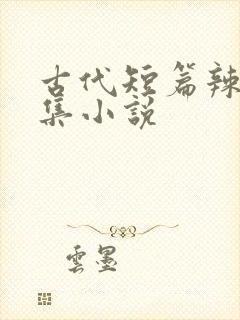 古代短篇辣
集小说
雲墨